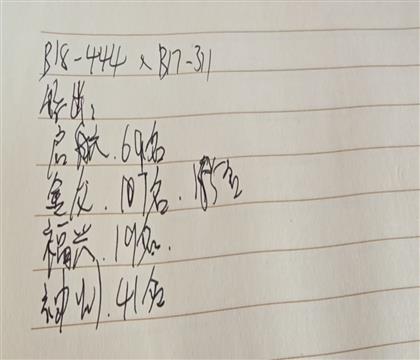 B18-444 x B17-311
启航.69名
金友.107名.185名
福兴.19名.
神州.41名